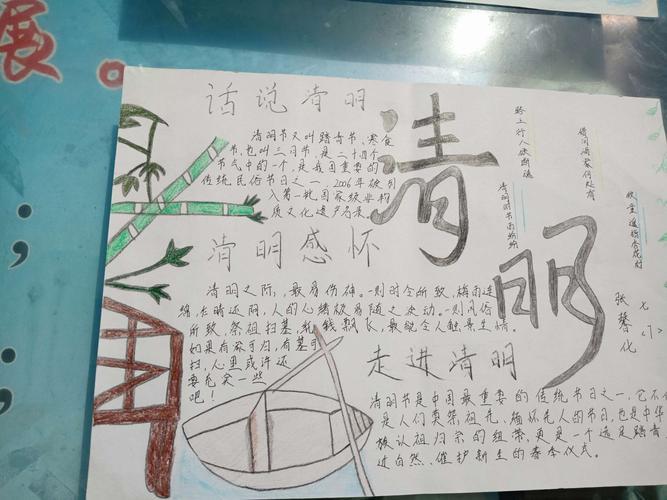 展。
话说清明
清明节又叫踏青节、寒食
节,也叫三月节,是二十四个
节气中的一个,是我国重要的
传统民俗节日之一,2006年被列
入第一批国家级非物
质文化遗产名录
清明
清明时节雨纷纷
路上行人欲断魂
借问酒家何处有
牧童遥指杏花村
七(1)
张馨化
清明感怀
清明之际,最易伤神。一则时令所致,梅雨连
绵,乍晴还雨,人的心绪极易随之波动。一则风俗
所致,祭祖扫墓,纸钱飘飞,最能令人触景生情。
如果有家可归,有墓可
扫,心里或许还
要充实一些
吧!
走进清明
清明节是中国最重要的传统节日之一,它不
是人们祭祖先、缅怀先人的节日,也是中华
族认祖归宗的纽带,更是一个远足踏青
近自然、催护新生的春季仪式。